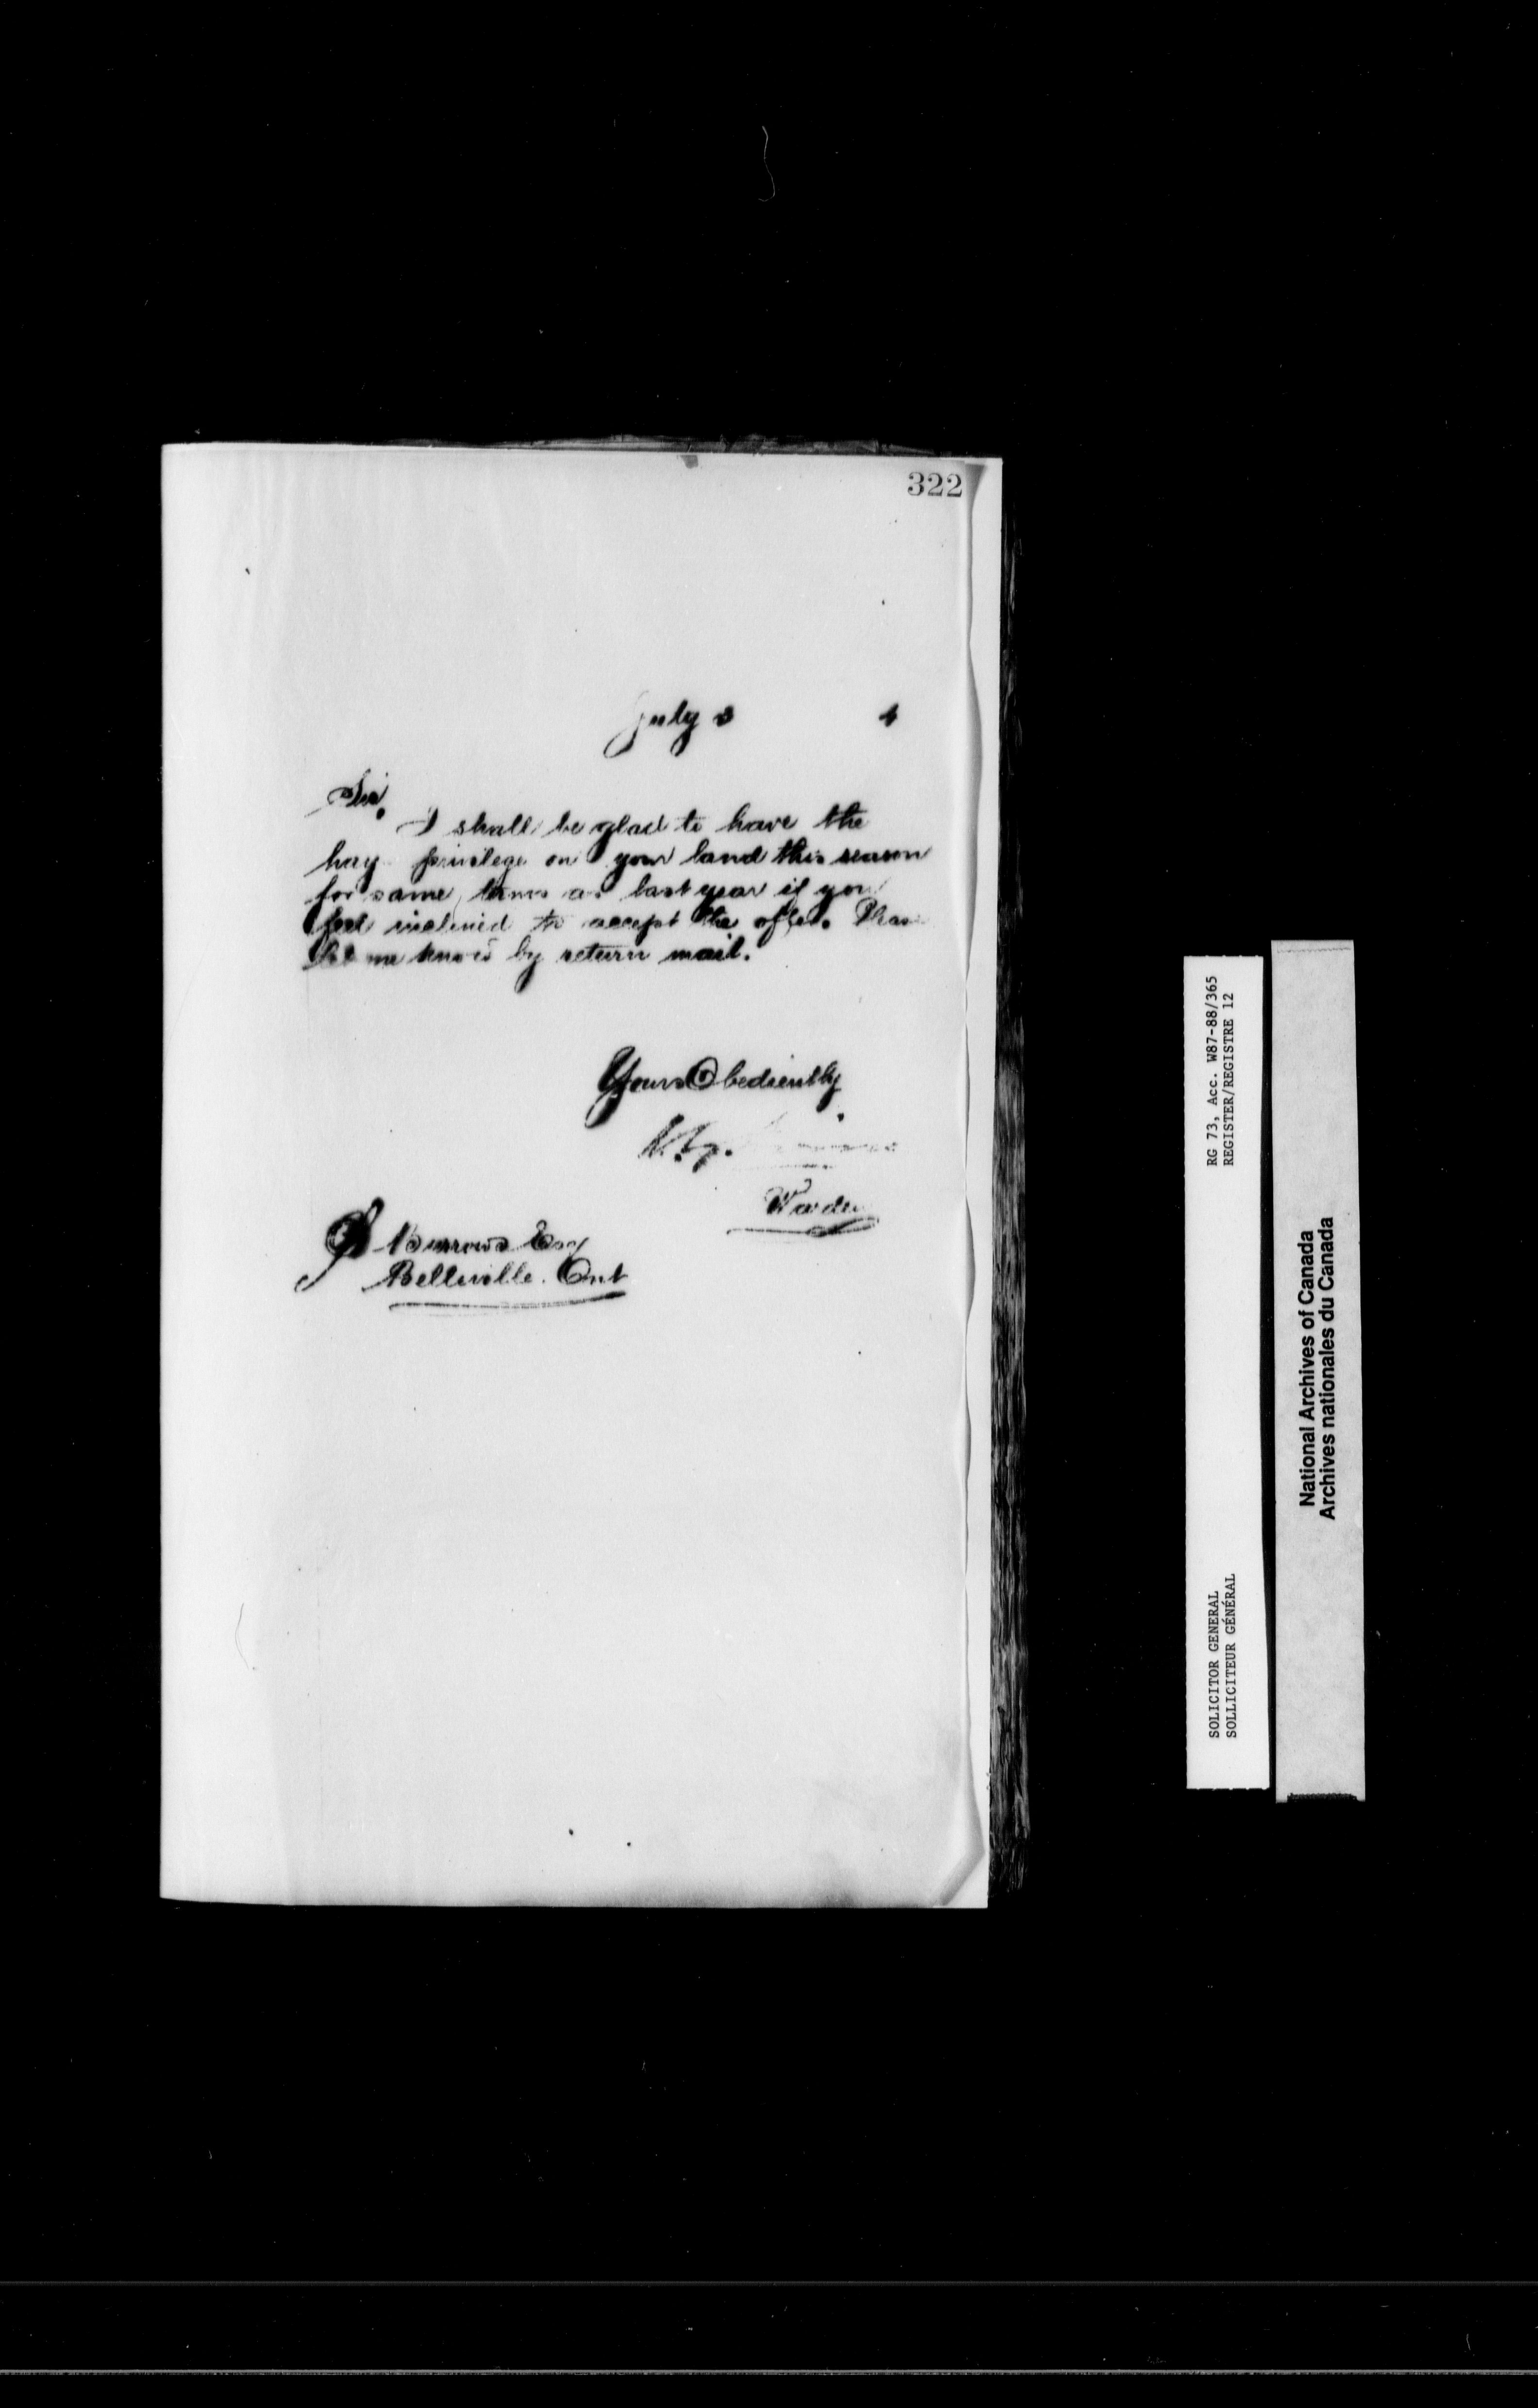 322
July 3 4
Sir,
I shall be glad to have the
hay privilege on your land this season
for same terms as last year if you
feel inclined to accept the offer. Pleas
let me know by return mail.
Yours Obediently
Warden
Burrows Esq
Belleville. Ont
RG 73, Acc. W87-88/365
REGISTER/REGISTRE 12
SOLICITOR GENERAL
SOLLICITEUR GÉNÉRAL
National Archives of Canada
Archives nationales du Canada